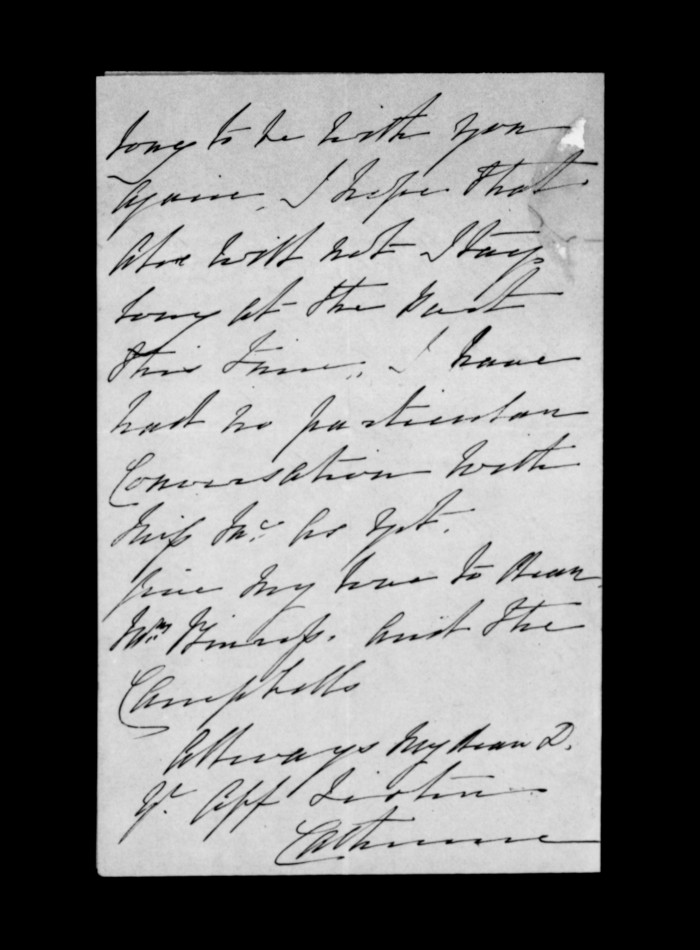 long to be with you
again. I hope that
Alex will not Stay
long at the East
this time. I have
had no particular
Conversation with
Miſs Mc as yet.
Give my love to Dear
and the
Campbells
Allways My dear D.
Yr Aff Sister
Catherine